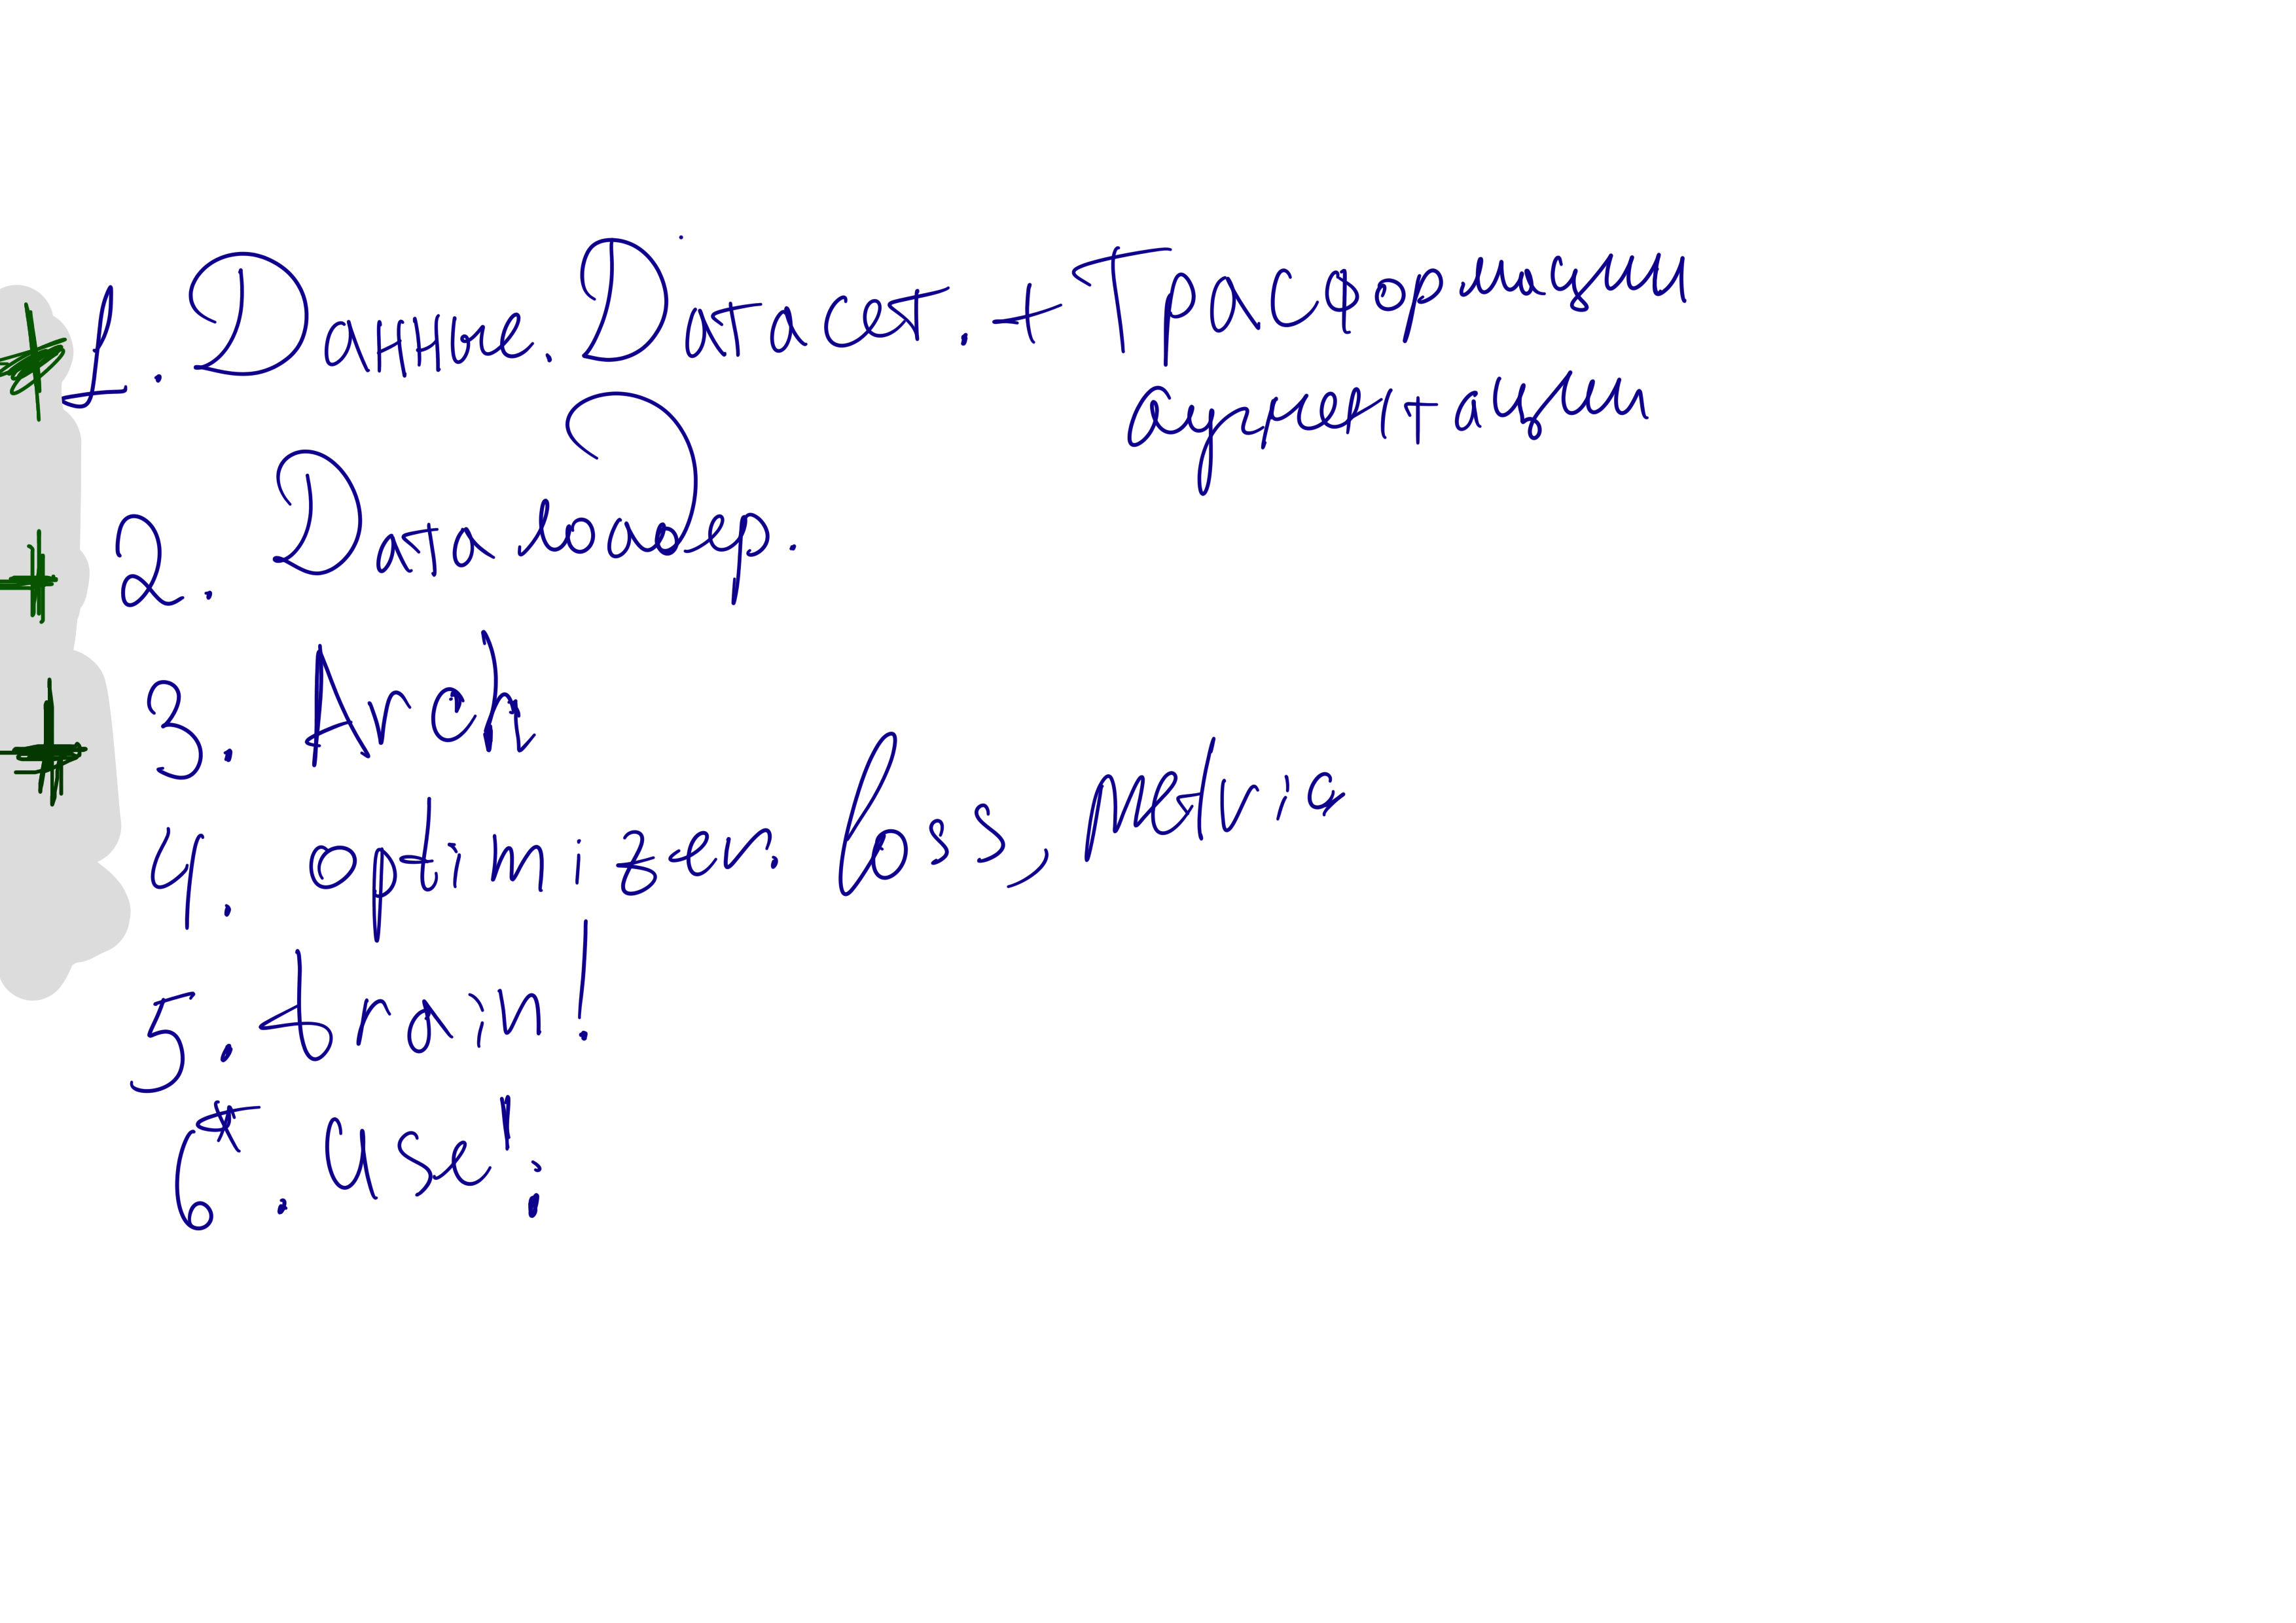 1. Данные. Датасет. + Трасформации
аугментации
2. Даталоадер.
3. Arch
4. optimizer. loss, metric
5. train!
6*. use!